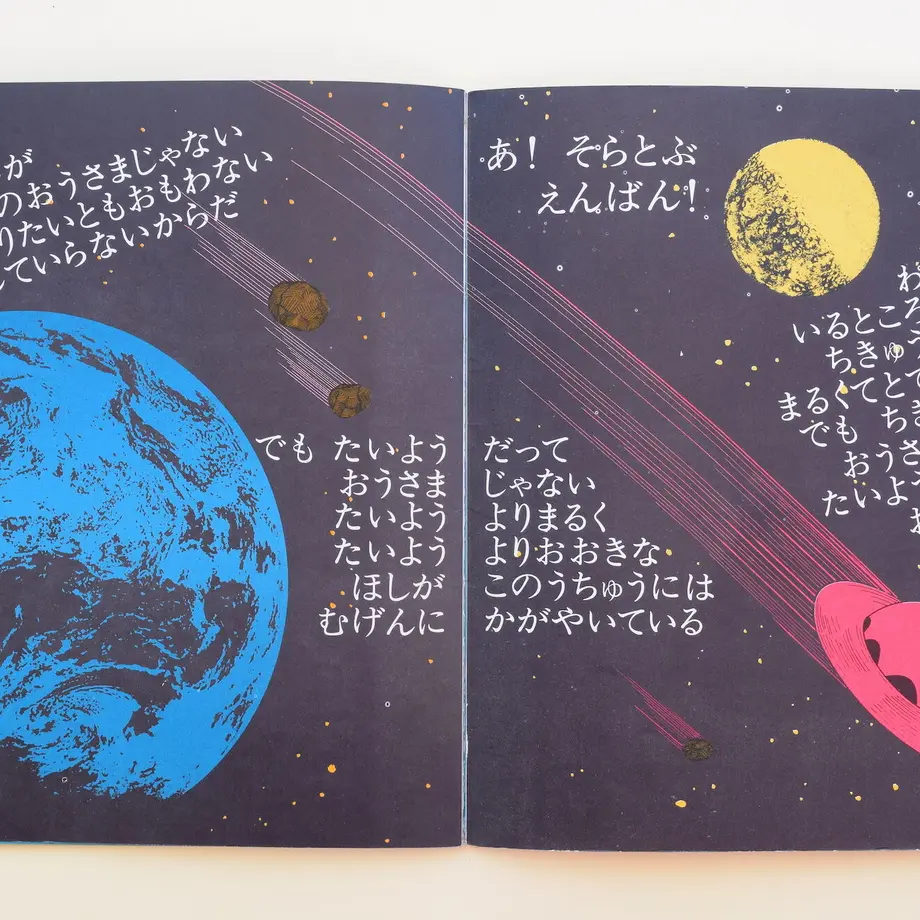 が
のおうさまじゃない
りたいともおもわない
ていらないからだ
でも たいよう だって
おうさま じゃない
たいよう よりまるく
たいよう よりおおきな
ほしが このうちゅうには
むげんに かがやいている
あ! そらとぶ
えんばん!
いるところ
ちきゅう
まるくてとて
でも ち
おうさ
たいよう